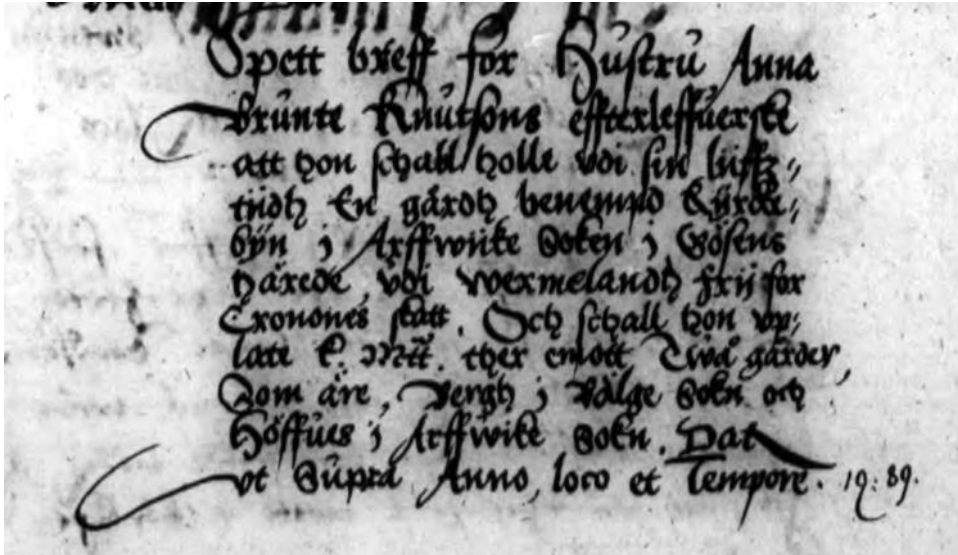 Opett breff for Hustru Anna
brunte Knutsons effterleffuerske
att hon schall holle vdi sin liiffz-
tiidh En gårdh benemnd Kyrcke-
byn j Arffwiike Soken j Gösens
härede, vdi wermelandh frij for
Cronones skatt. Och schall hon vp-
late E. Mtt. ther emott Twå gårder,
Som äre, Bergh j Wålge Sokn och
Höffues j Arffwike Sokn. Dat
vt Supra Anno, loco et Tempore. 19: 89.